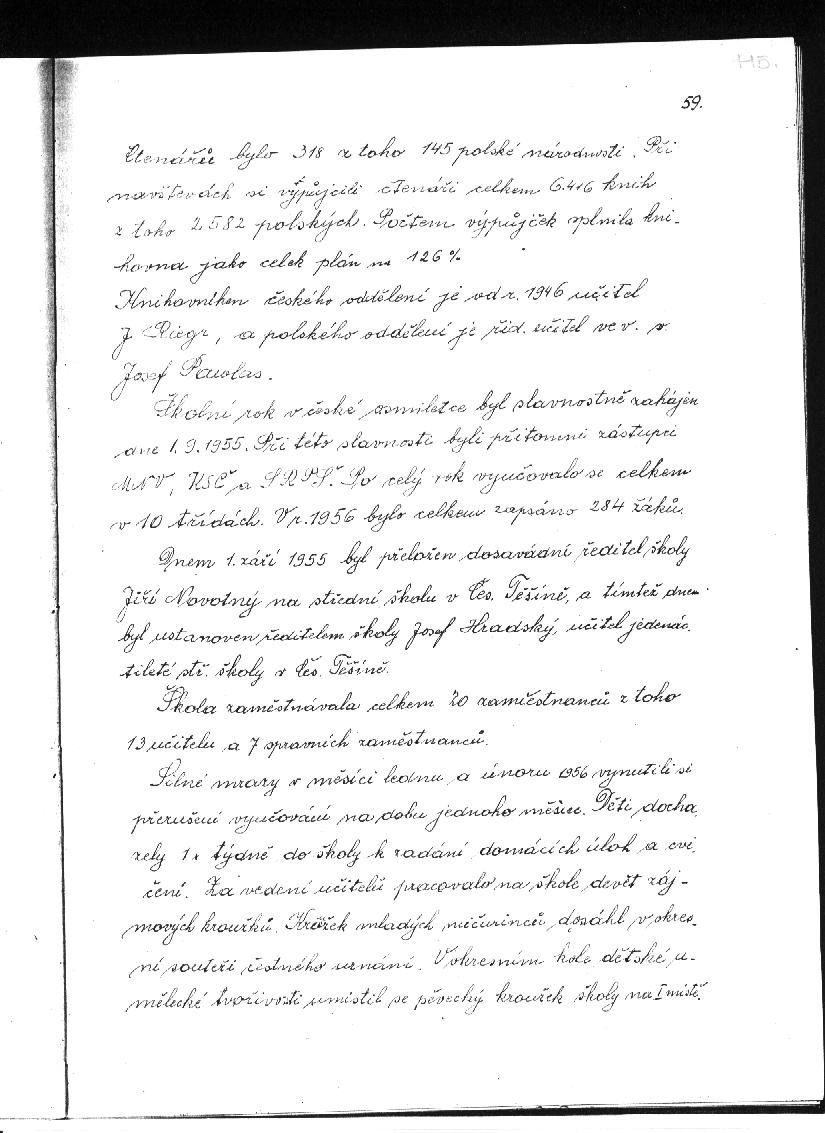 115.
59.
Čtenářů bylo 318 z toho 145 polské národnosti. Při
navštevách si výpůjčili čtenáři celkem 6.416 knih
z toho 2582 polských. Počtem výpůjček splnila kni-
hovna jako celek plán na 126 %.
Knihovníkem českého oddělení je od r. 1946 učitel
J. Riegr, a polského oddělení je říd. učitel ve v. v.
Josef Pawlas.
Školní rok v české osmiletce byl slavnostně zahájen
dne 1.9.1955. Při této slavnosti byli přítomni zástupci
MNV, KSČ a SRPŠ. Po celý rok vyučovalo se celkem
v 10 třídách. V r. 1956 bylo celkem zapsáno 284 žáků.
Dnem 1. září 1955 byl přeložen dosavádní ředitel školy
Jiří Novotný na střední školu v Čes. Těšíně, a tímtež dnem
byl ustanoven ředitelem školy Josef Hradský, učitel jedenác-
tileté stř. školy v Čes. Těšíně.
Škola zaměstnávala celkem 20 zaměstnanců z toho
13 učitelu a 7 spravních zaměstnanců.
Silné mrazy v měsíci lednu a únoru 1956 vynutili si
přerušení vyučování na dobu jednoho měsíce. Děti dochá-
zely 1x týdně do školy k zadání domácích úloh a cvi-
čení. Za vedení učitelů pracovalo na škole devět záj-
mových kroužků. Kroužek mladých mičurinců dosáhl v okres-
ní soutěži čestného uznání. V okresním kole dětské u-
mělecké tvořivosti umistil se pěvecký kroužek školy na I místě.